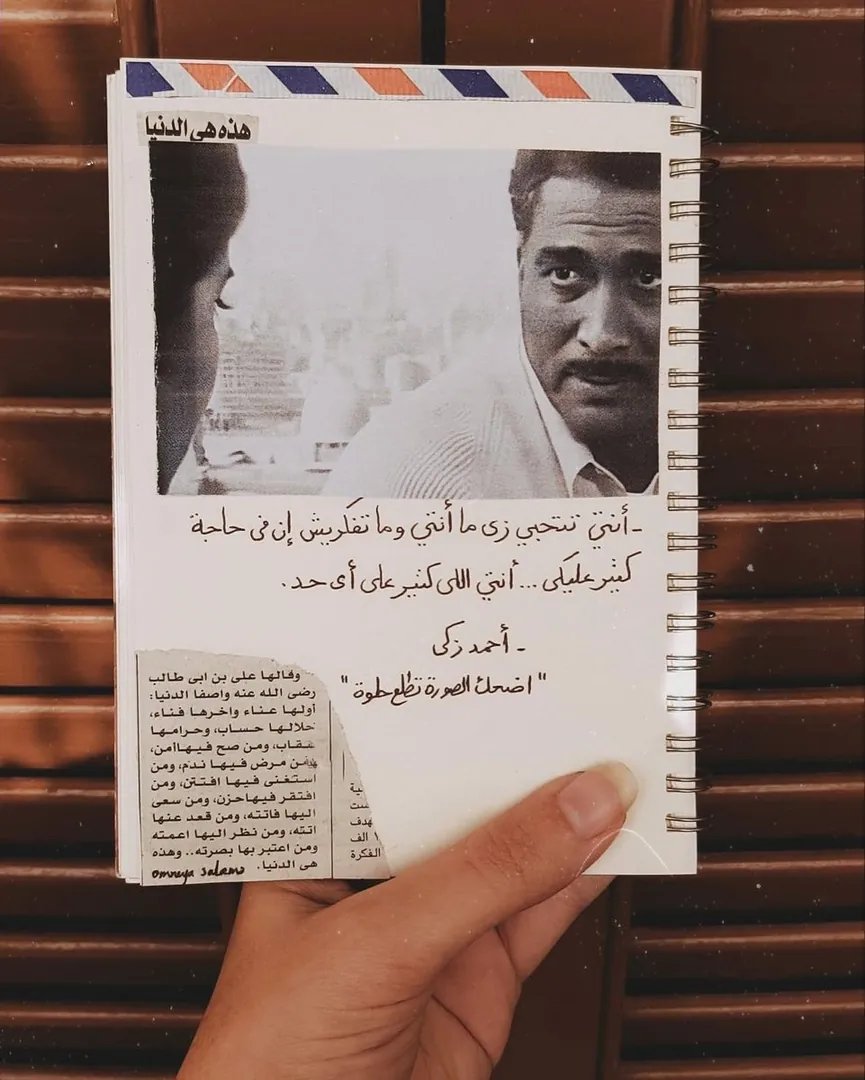 هذه هى الدنيا
- أنتي تتحبي زى ما أنتي وما تفكريش إن فى حاجة
كتير عليكى ... أنتي اللى كتير على أى حد .
- أحمد زكى
" اضحك الصورة تطلع حلوة "
وقالها على بن ابى طالب
رضى الله عنه واصفا الدنيا:
أولها عناء واخرها فناء،
حلالها حساب، وحرامها
عقاب، ومن صح فيها أمن،
ومن مرض فيها ندم، ومن
استغنى فيها افتتن، ومن
افتقر فيها حزن، ومن سعى
اليها فاتته، ومن قعد عنها
اتته، ومن نظر اليها اعمته
ومن اعتبر بها بصرته.. وهذه
هى الدنيا.
omneya salamo
الف
الفكرة